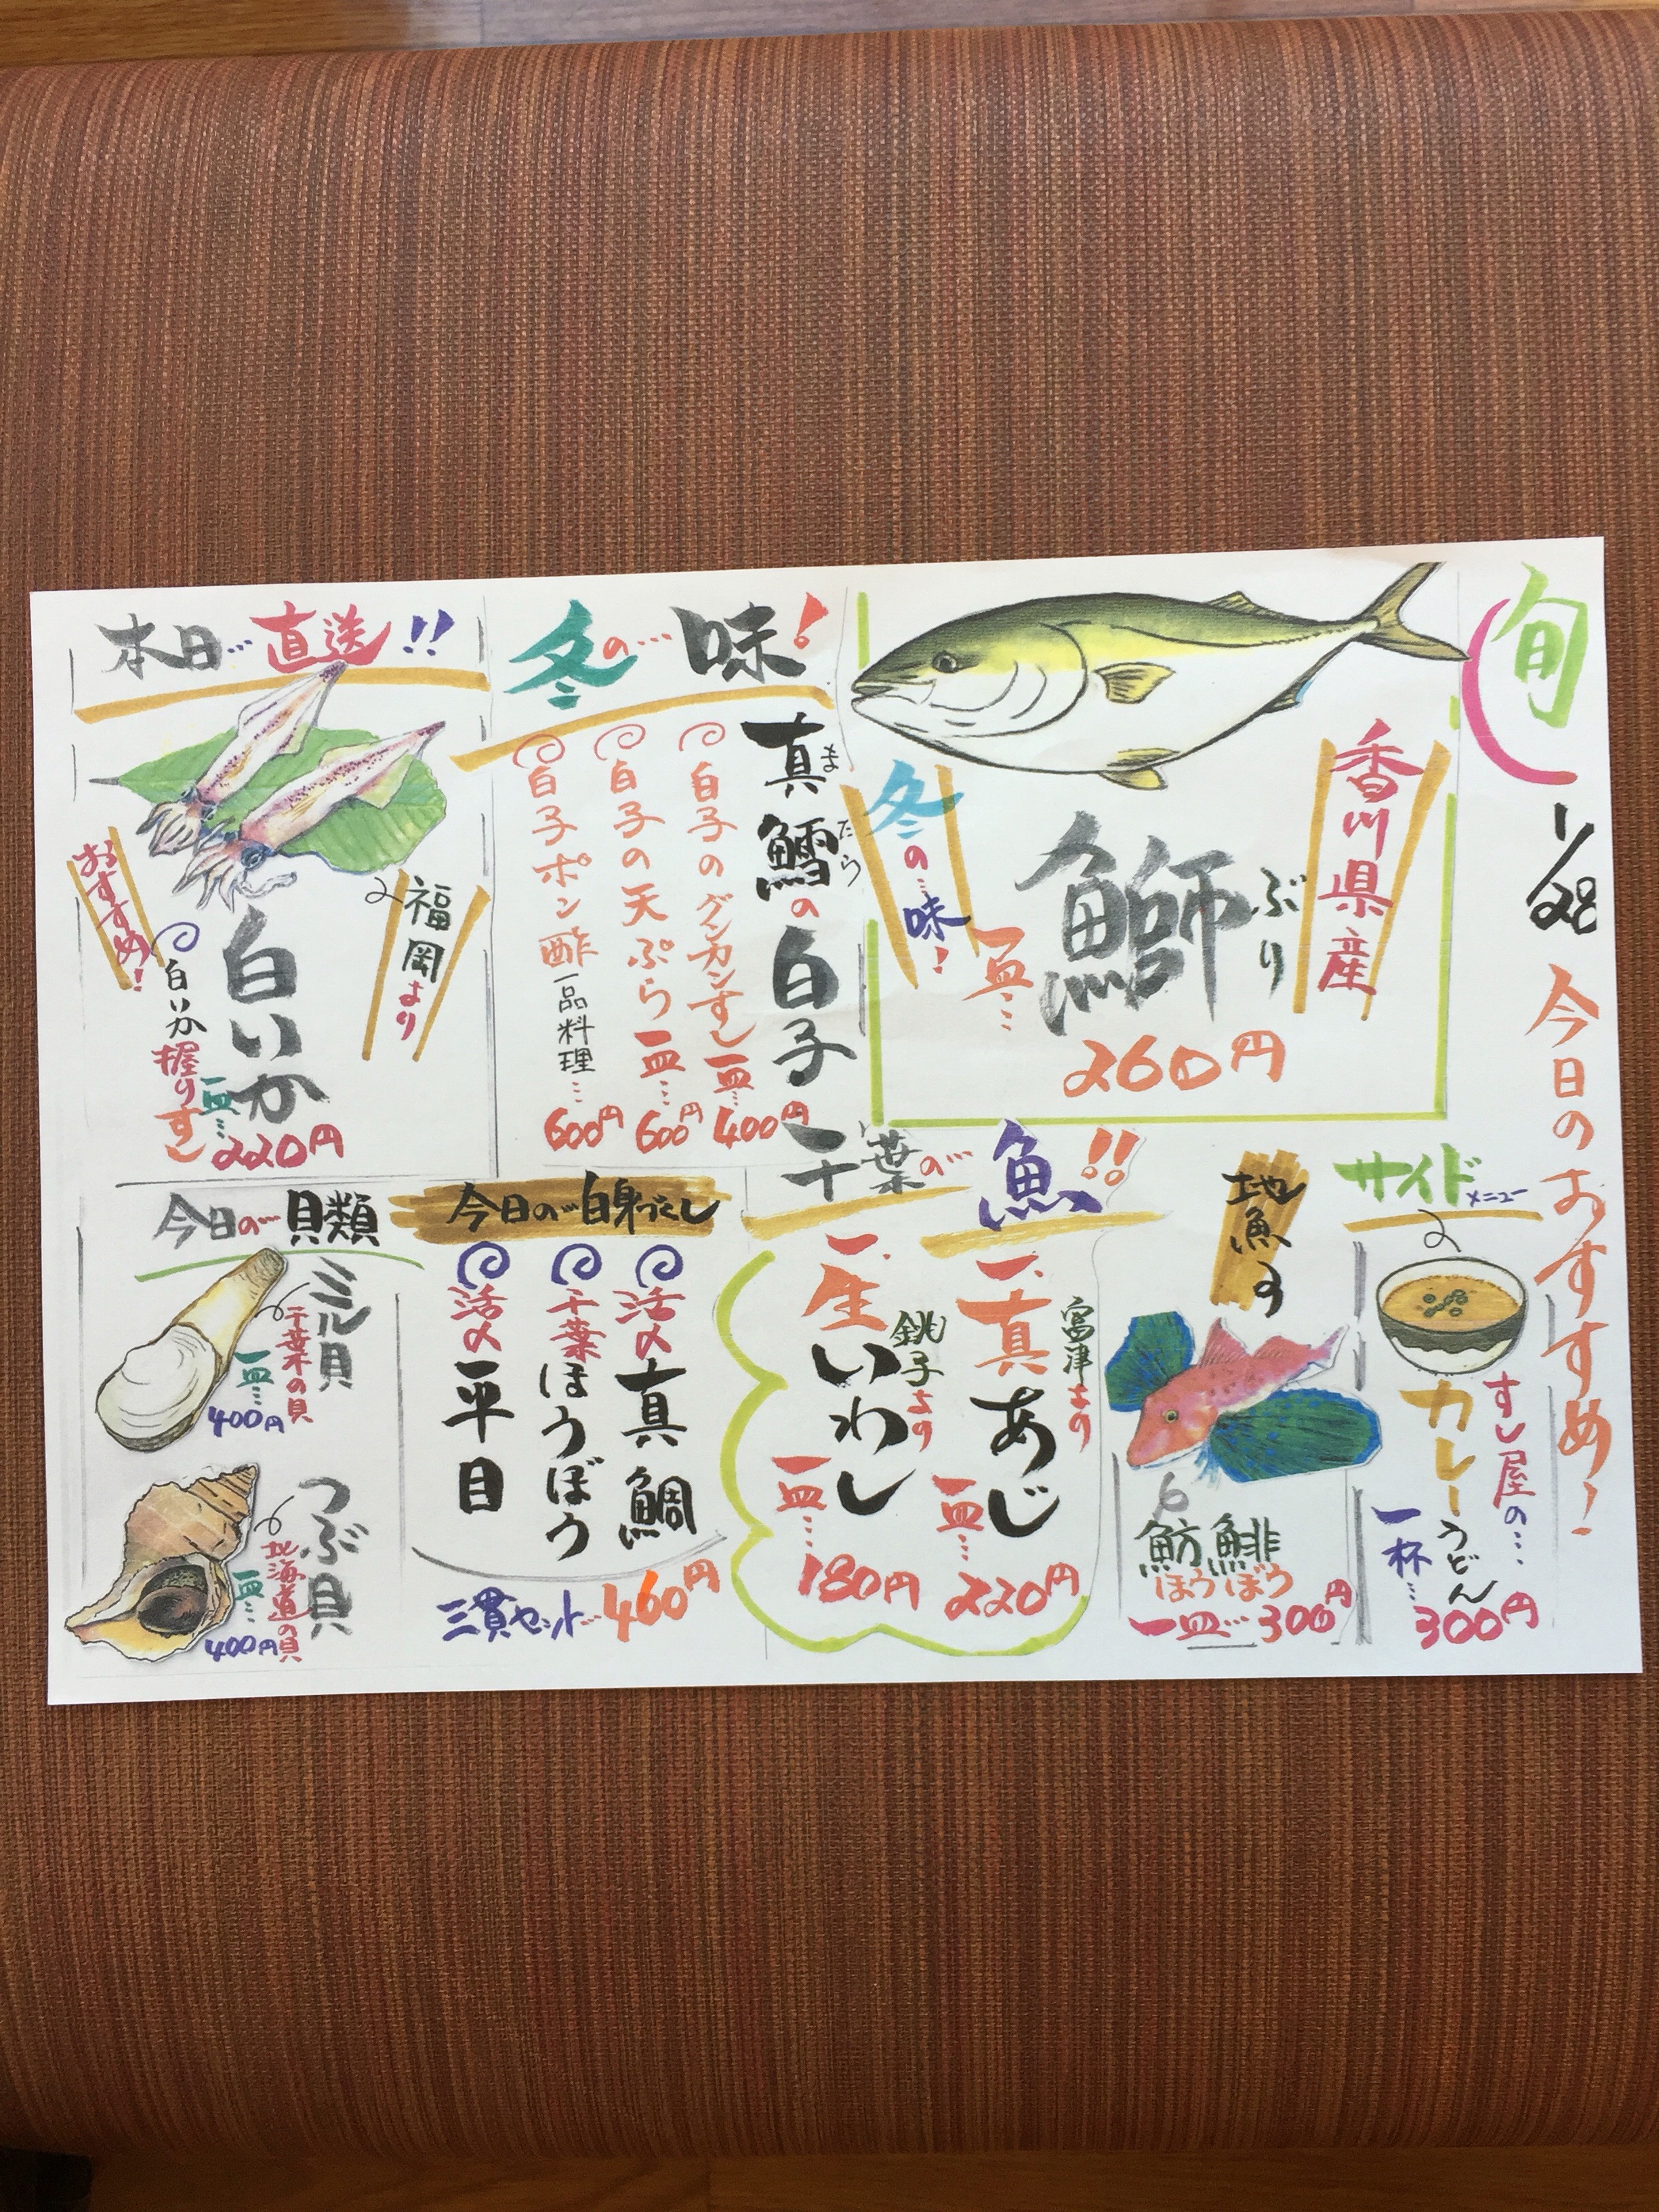 旬
1/28
今日のおすすめ!
香川県産
鰤
ぶり
冬の…味!
一皿…
260円
冬の…味!
真鱈の白子
まだら
白子のグンカンすし一皿…400円
白子の天ぷら一皿…600円
白子ポン酢一品料理…600円
本日…直送!!
福岡より
白いか
おすすめ!
白いか握りすし
一皿…
220円
サイドメニュー
すし屋の…
カレーうどん
一杯…
300円
地魚
魴鮄
ほうぼう
一皿…300円
千葉の…魚!!
富津より
真あじ
一皿…
220円
銚子より
生いわし
一皿…
180円
今日の…白身づくし
活〆真鯛
千葉ほうぼう
活〆平目
三貫セット…460円
今日の…貝類
ミル貝
千葉の貝
一皿…
400円
つぶ貝
北海道の貝
一皿…
400円